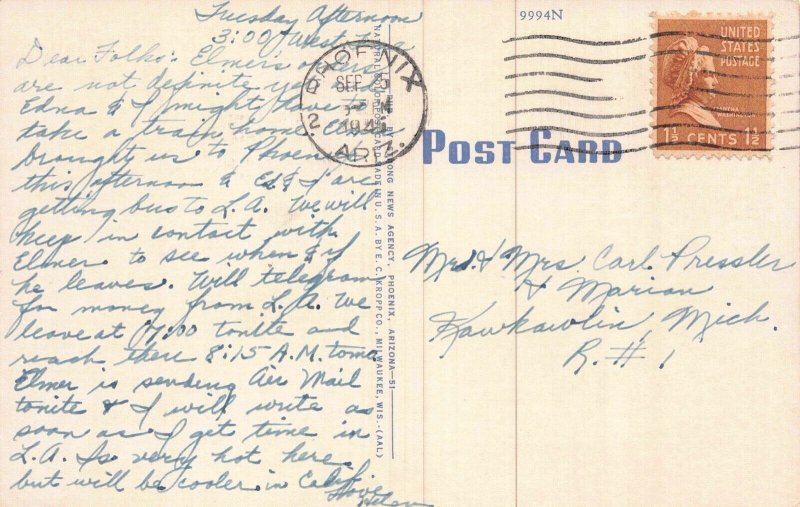 Tuesday Afternoon
3:00 West
Dear Folks: Elmers orders
are not definite yet so
Edna & I might have to
take a train home
brought us to Phoenix
this afternoon & Ed & I are
getting bus to L.A. We will
keep in contact with
Elmer to see when & if
he leaves. Will telegram
for money from L.A. We
leave at 7:00 tonite and
reach there 8:15 A.M. tomo
Elmer is sending Air Mail
tonite & I will write as
soon as I get time in
L.A. Is very hot here
but will be cooler in Calif.
Love
Helen
PHOENIX
SEP
2
ARIZ.
NEWS AGENCY, PHOENIX, ARIZONA—51—
MADE IN U.S.A. BY E. C. KROPP CO., MILWAUKEE, WIS.-(AAL)
9994N
POST CARD
UNITED
STATES
POSTAGE
MARTHA
WASHINGTON
1½ CENTS 1½
Mr. & Mrs. Carl Pressler
& Marian
Kawkawlin, Mich.
R. # 1